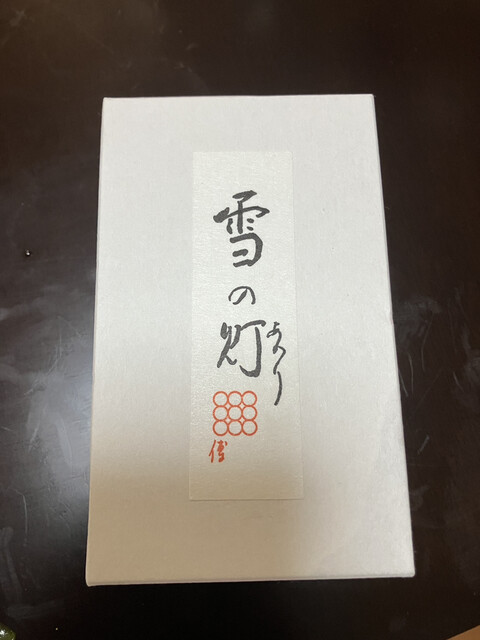 雪の灯
あかり
傳